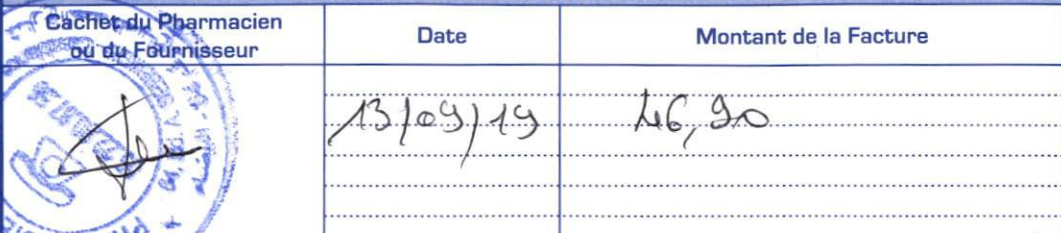 Cachet du Pharmacien
ou du Fournisseur
Date
Montant de la Facture
13/09/19
46,90